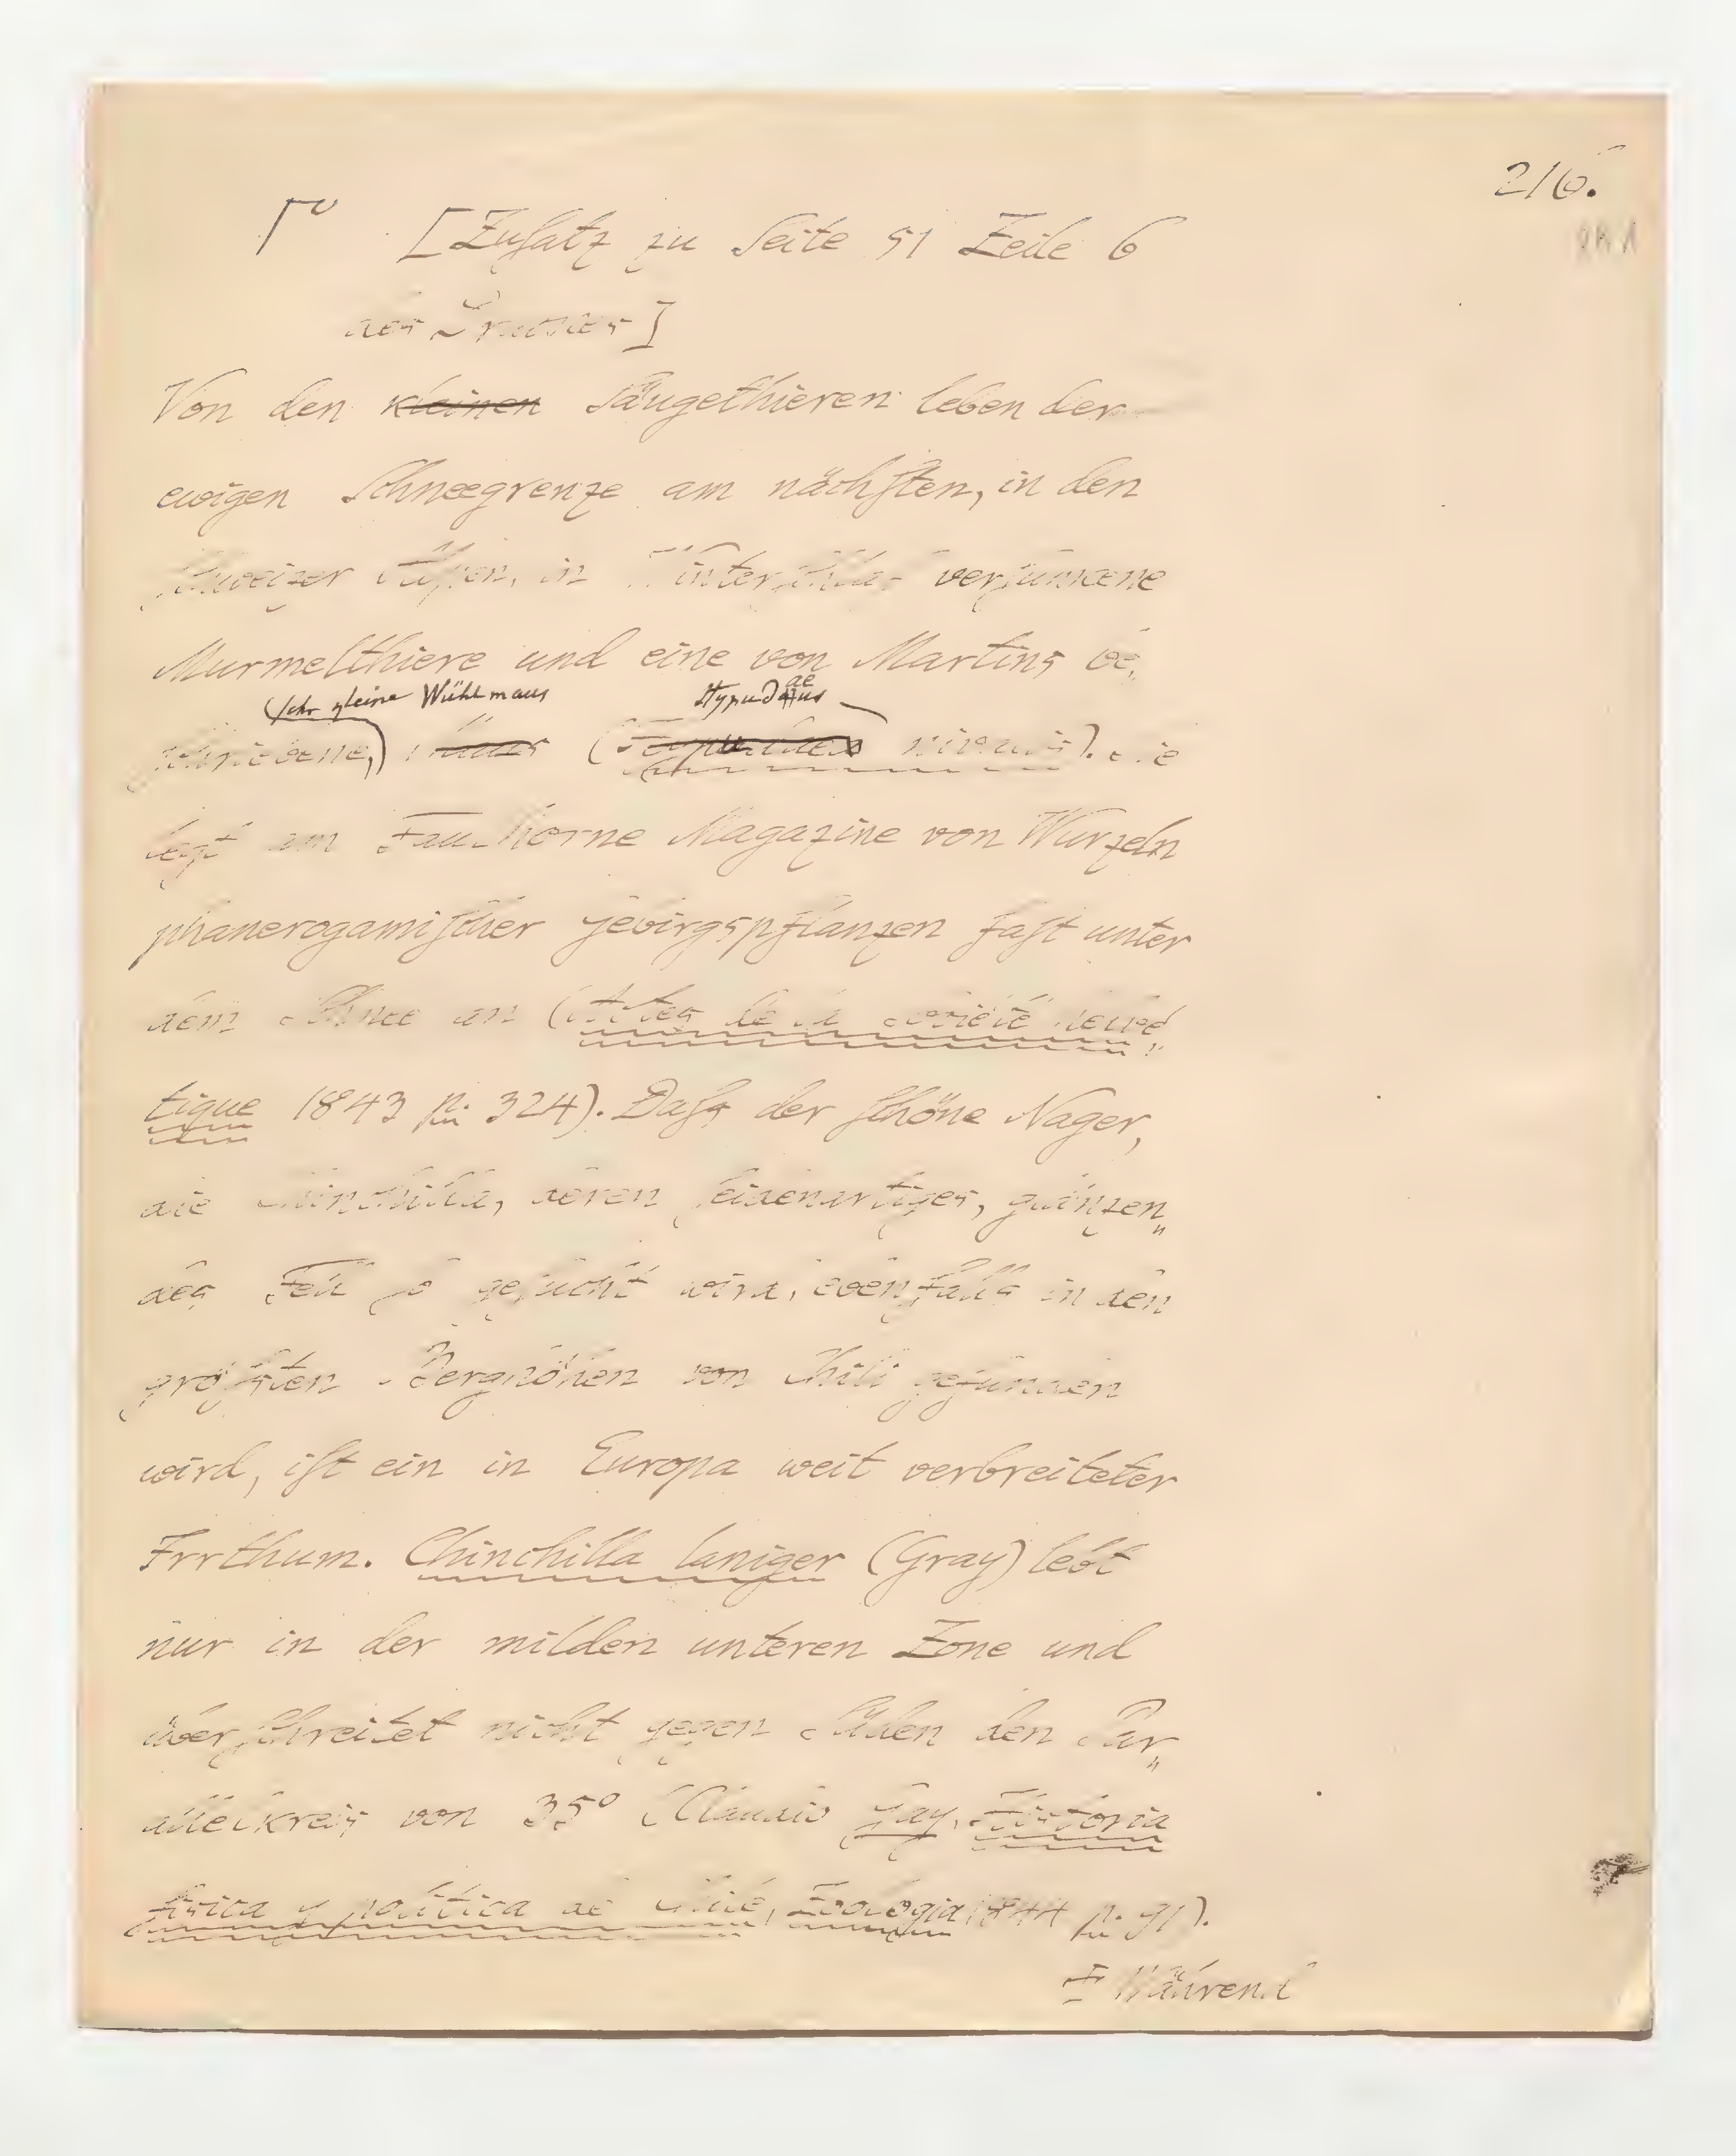 216.
[Zusatz zu Seite 51 Zeile 6
des Druckes]
Von den kleinen Säugethieren leben der
ewigen Schneegrenze am nächsten, in den
Schweizer Alpen, in Winterschlaf versunkene
Murmelthiere und eine von Martins be„
sehr kleine Wühlmaus Hypudaeus
schriebene, Maus ( nivalis). Sie
legt am Faulhorne Magazine von Wurzeln
phanerogamischer Gebirgspflanzen fast unter
dem Schnee an (Actes de la Société helvé„
tique 1843 p. 324). Dass der schöne Nager,
die Chinchilla, deren seidenartiges, glänzen„
des Fell so gesucht wird, ebenfalls in den
größten Berghöhen von Chili gefunden
wird, ist ein in Europa weit verbreiteter
Irrthum. Chinchilla laniger (Gray) lebt
nur in der milden unteren Zone und
überschreitet nicht gegen Süden den Par„
allelkreis von 35° (Claudio Gay, Historia
fisica y politica de Chile, Zoologia 1844 p. 91).
Während